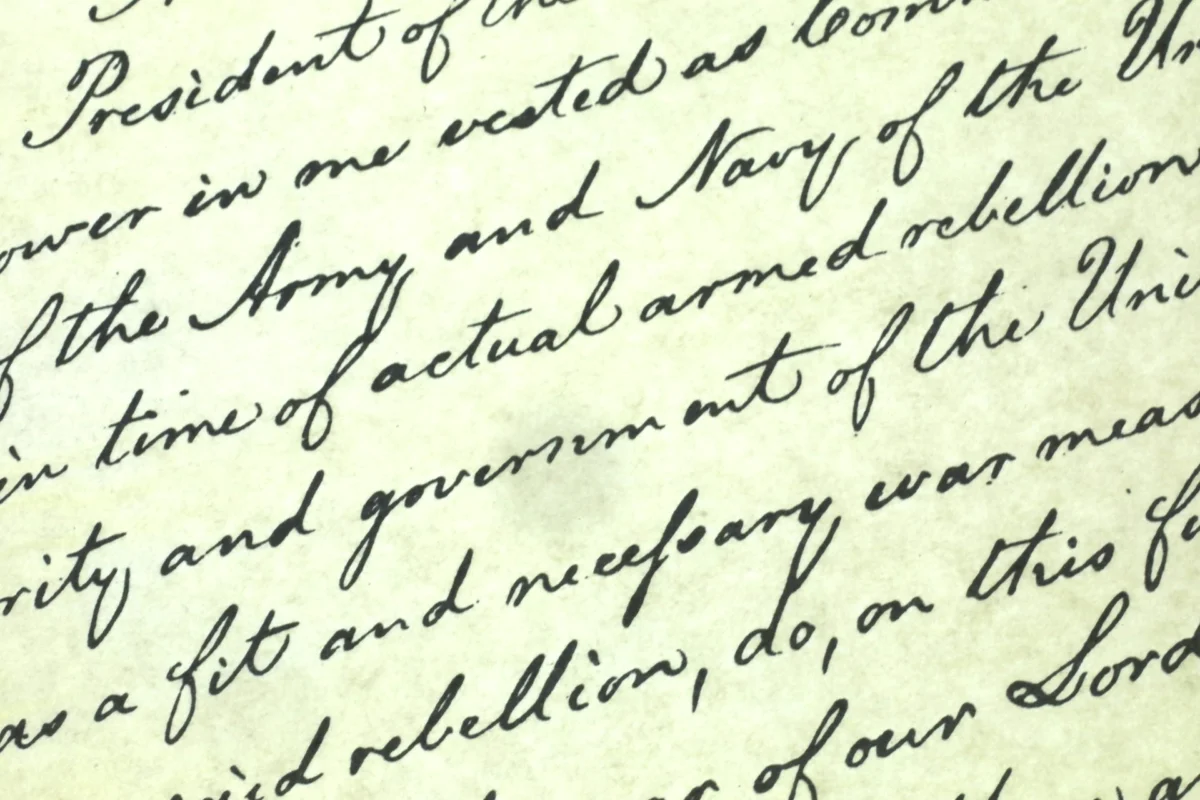 President of the
ower in me vested as Comm
f the Army, and Navy, of the Un
in time of actual armed rebellion
rity, and government of the Uni
as a fit and neceſsary war meas
said rebellion, do, on this fi
of our Lord